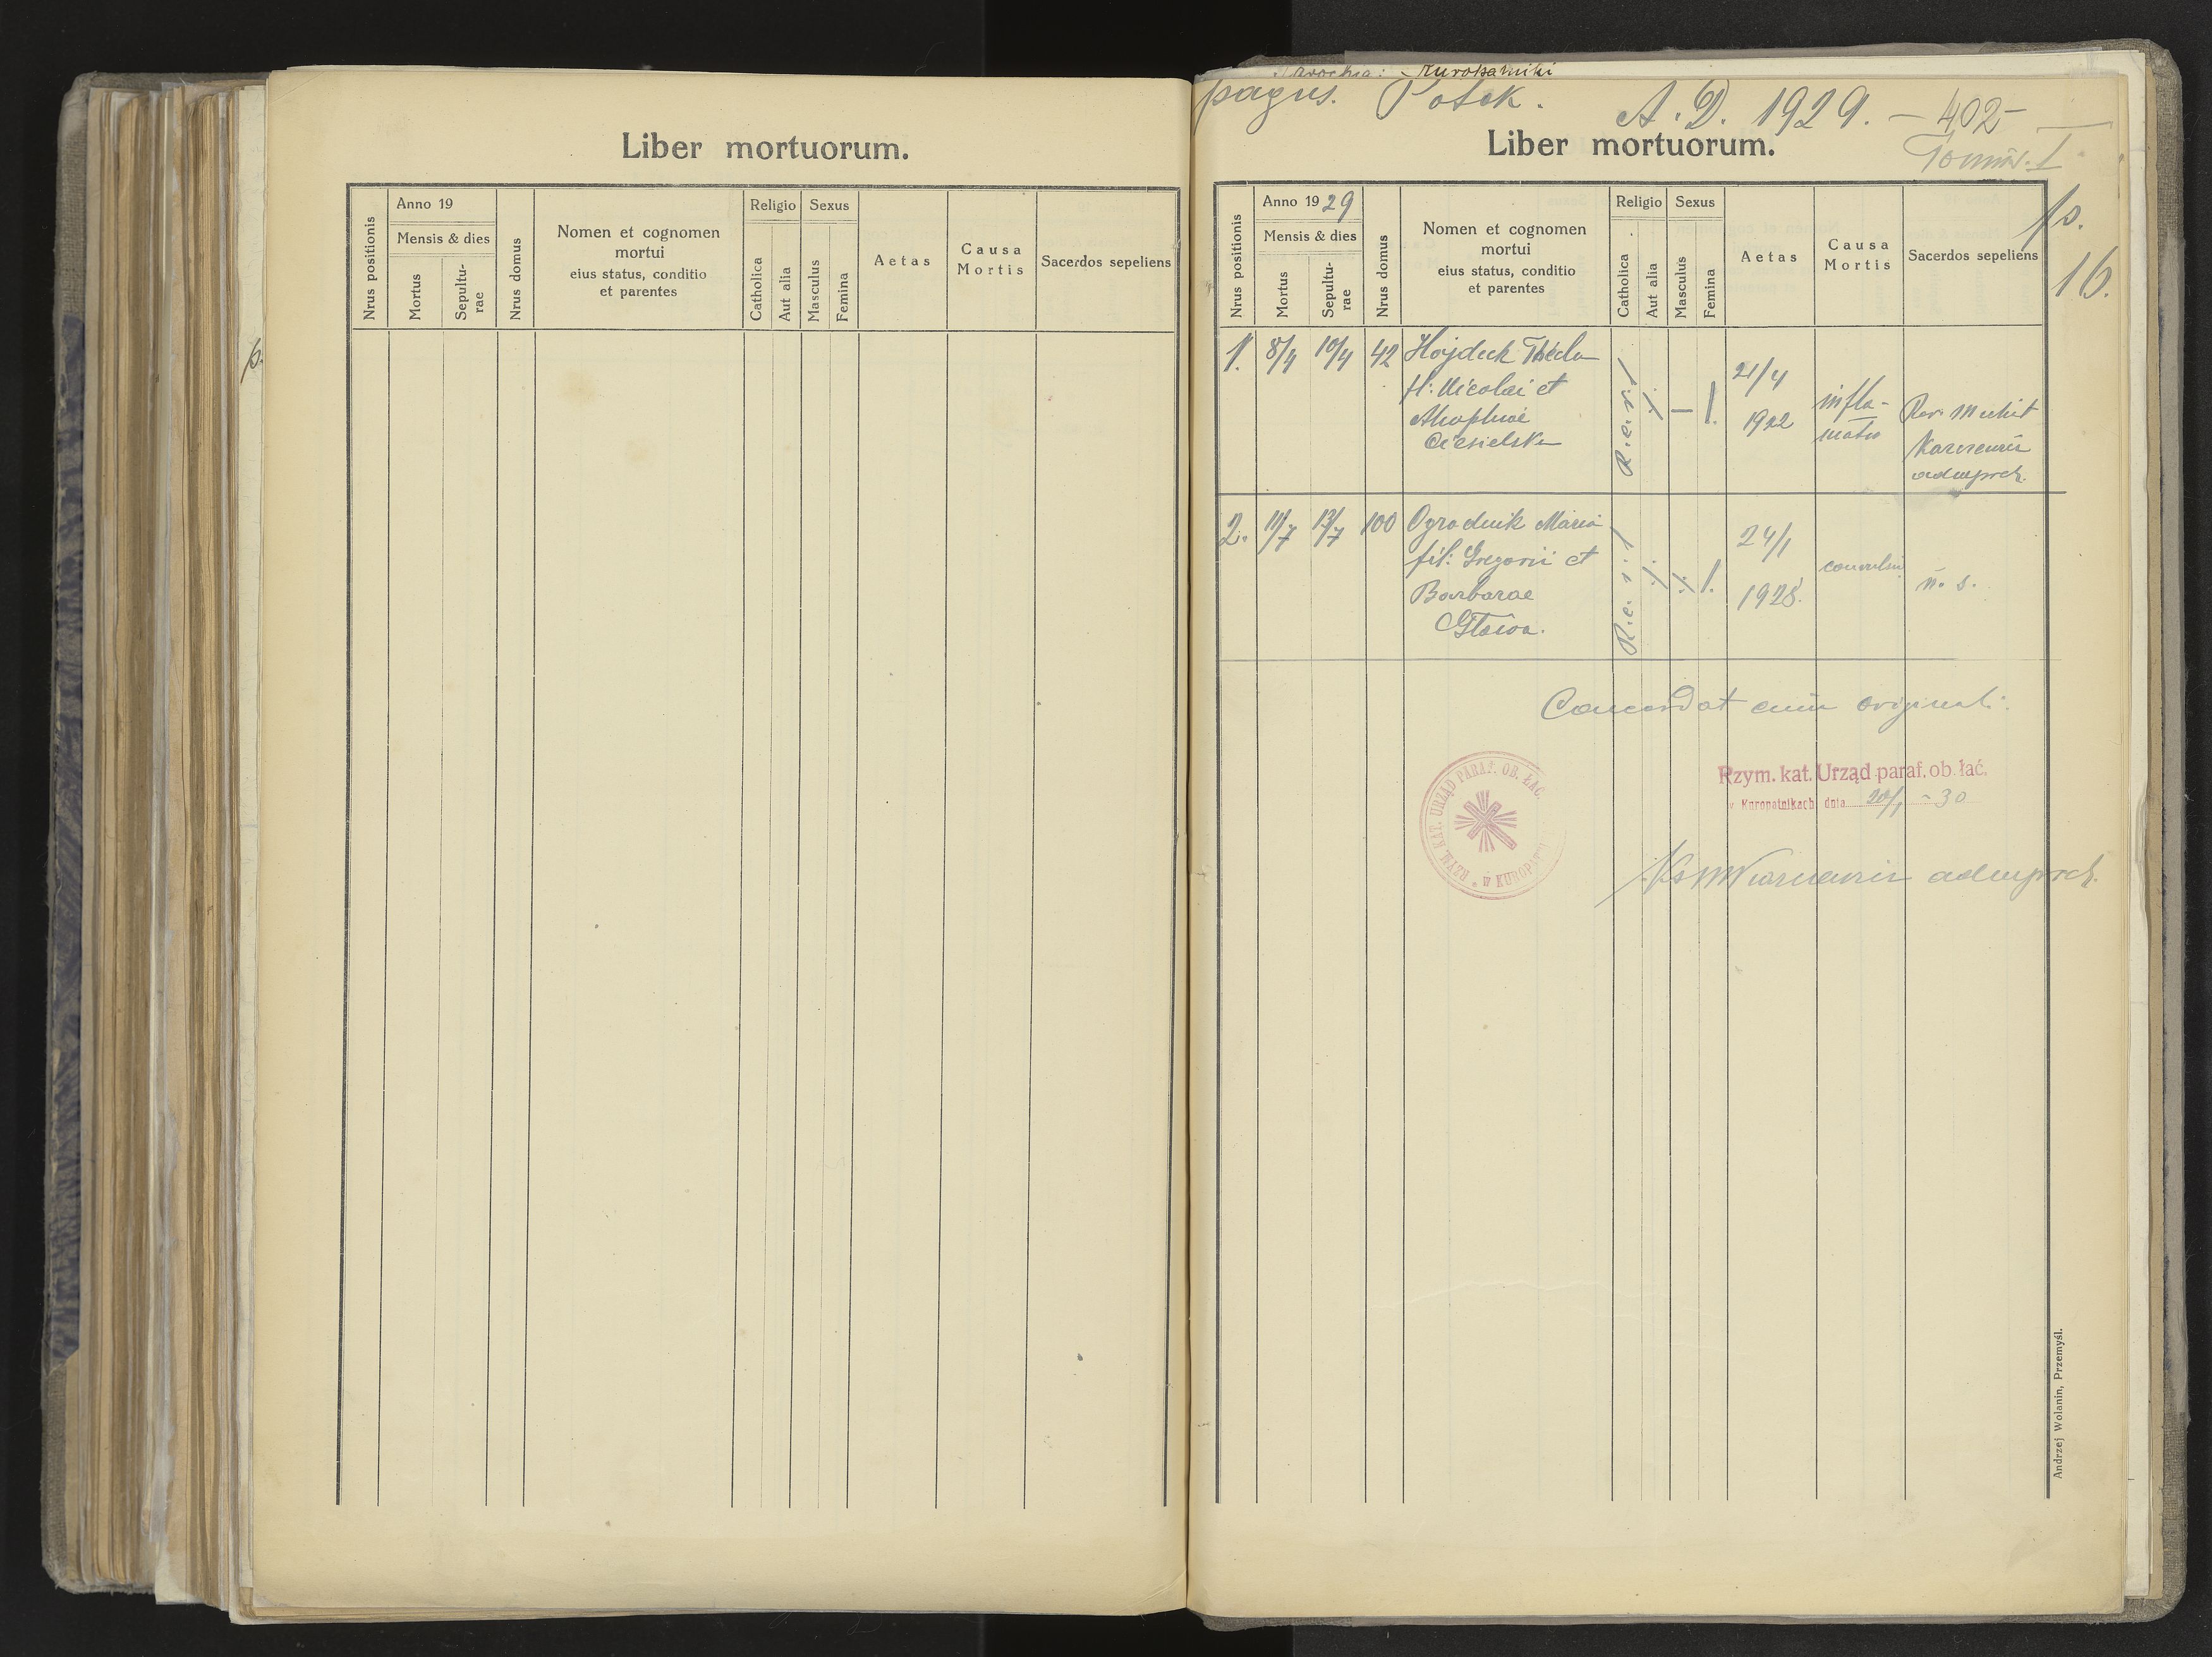 Liber mortuorum.
Nrus positionis
Anno 19
Mensis & dies
Mortus
Sepultu-
rae
Nrus domus
Nomen et cognomen
mortui
eius status, conditio
et parentes
Religio
Catholica
Aut alia
Sexus
Masculus
Femina
Aetas
Causa
Mortis
Sacerdos sepeliens
p.
Parochia: Kuropatniki
pagus. Potok. A. D. 1929. - 402 -
Liber mortuorum.
Tomus. I
p.
16.
Nrus positionis
Anno 1929
Mensis & dies
Mortus
Sepultu-
rae
Nrus domus
Nomen et cognomen
mortui
eius status, conditio
et parentes
Religio
Catholica
Aut alia
Sexus
Masculus
Femina
Aetas
Causa
Mortis
Sacerdos sepeliens
1. 8/4 10/4 42 Hojdech Thecla
fil: Nicolai et
Ciesielska
21/4
1922
infla-
matio
Rev.
admprch.
2. 11/7 13/7 100 Ogrodnik Maria
fil: Gregorii et
Barbarae
Głowa.
24/1
1928.
convulsii
n. s.
Concordat cum originali.
RZYM. KAT. URZĄD PARAF. OB. ŁAĆ. * w KUROPATN
Rzym. kat. Urząd paraf. ob. łać.
w Kuropatnikach dnia 20/1 - 30
admprch.
Andrzej Wolanin, Przemyśl.